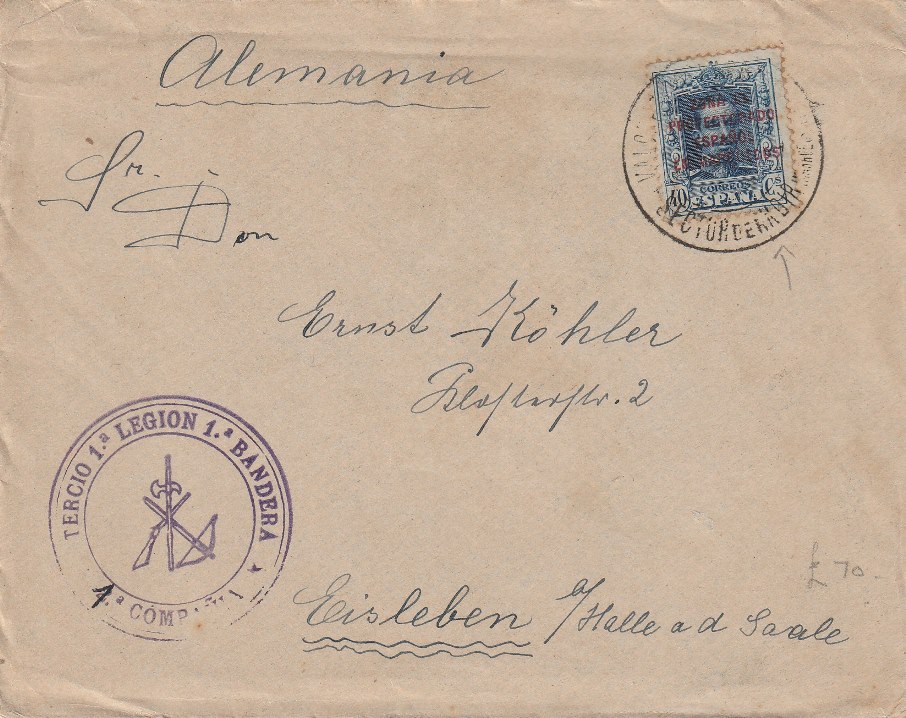 Alemania
Sr.
Don
ZONA
PROTECTORADO
ESPAÑOL
EN MARRUECOS
40 CORREOS Cs
ESPAÑA
Ernst Köhler
Klosterstr. 2
TERCIO 1.ª LEGION 1.ª BANDERA
1.ª COMPAÑIA
£ 70-
Eisleben a/Halle a d Saale